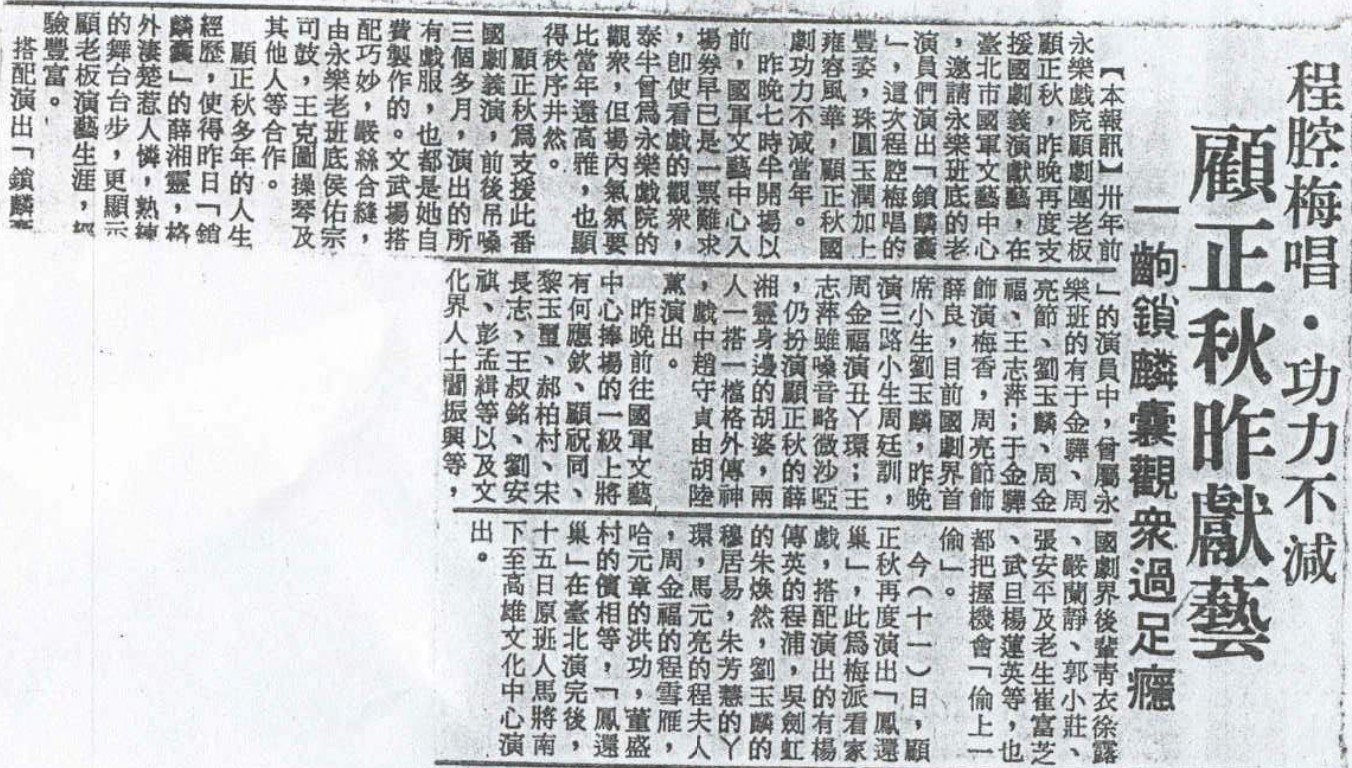 程腔梅唱・功力不減
顧正秋昨獻藝
一齣鎖麟囊觀衆過足癮
【本報訊】卅年前
永樂戲院顧劇團老板
顧正秋，昨晚再度支
援國劇義演獻藝，在
臺北市國軍文藝中心
，邀請永樂班底的老
演員們演出「鎖麟囊
」，這次程腔梅唱的
豐姿，珠圓玉潤加上
雍容風華，顧正秋國
劇功力不減當年。
昨晚七時半開場以
前，國軍文藝中心入
場券早已是一票難求
，卽使看戲的觀衆，
泰半曾爲永樂戲院的
觀衆，但場內氣氛要
比當年還高雅，也顯
得秩序井然。
顧正秋爲支援此番
國劇義演，前後吊嗓
三個多月，演出的所
有戲服，也都是她自
費製作的。文武場搭
配巧妙，嚴絲合縫，
由永樂老班底侯佑宗
司鼓，王克圖操琴及
其他人等合作。
顧正秋多年的人生
經歷，使得昨日「鎖
麟囊」的薛湘靈，格
外淒楚惹人憐，熟練
的舞台台步，更顯示
顧老板演藝生涯，經
驗豐富。
搭配演出「鎖麟囊
」的演員中，曾屬永
樂班的有于金驊、周
亮節、劉玉麟、周金
福、王志萍；于金驊
飾演梅香，周亮節飾
薛良，目前國劇界首
席小生劉玉麟，昨晚
演三路小生周廷訓，
周金福演丑丫環；王
志萍雖嗓音略微沙啞
，仍扮演顧正秋的薛
湘靈身邊的胡婆，兩
人一搭一檔格外傳神
，戲中趙守貞由胡陸
蕙演出。
昨晚前往國軍文藝
中心捧場的一級上將
有何應欽、顧祝同、
黎玉璽、郝柏村、宋
長志、王叔銘、劉安
祺、彭孟緝等以及文
化界人士閻振興等，
國劇界後輩靑衣徐露
、嚴蘭靜、郭小莊、
張安平及老生崔富芝
、武旦楊蓮英等，也
都把握機會「偷上一
偷」。
今（十一）日，顧
正秋再度演出「鳳還
巢」，此爲梅派看家
戲，搭配演出的有楊
傳英的程浦，吳劍虹
的朱煥然，劉玉麟的
穆居易，朱芳慧的丫
環，馬元亮的程夫人
，周金福的程雪雁，
哈元章的洪功，董盛
村的儐相等，「鳳還
巢」在臺北演完後，
十五日原班人馬將南
下至高雄文化中心演
出。